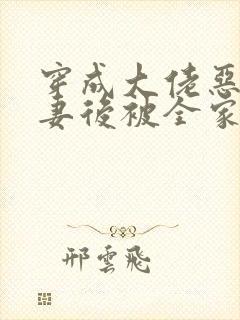 穿成大佬惡
妻後被全家
邢雲飛